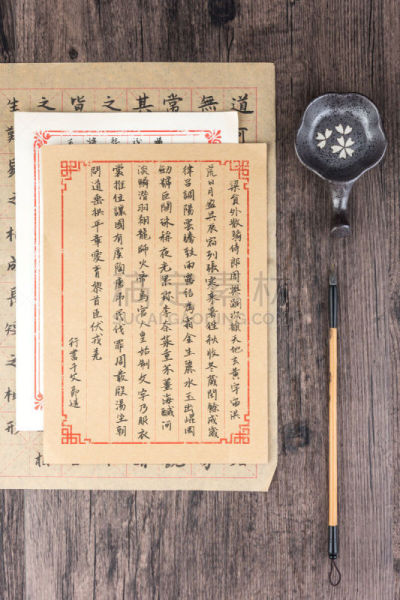 梁員外散騎侍郎周興嗣次韻天地玄黃宇宙洪
荒日月盈昃辰宿列張寒來暑往秋收冬藏閏餘成歲
律呂調陽雲騰致雨露結為霜金生麗水玉出崑岡
劍號巨闕珠稱夜光菓珍李柰菜重芥薑海鹹河
淡鱗潛羽翔龍師火帝鳥官人皇始制文字乃服衣
裳推位讓國有虞陶唐弔民伐罪周發殷湯坐朝
問道垂拱平章愛育黎首臣伏戎羌
行書千文節選
道可
無
其
常
之
皆
之
生難易之相成長短之相形